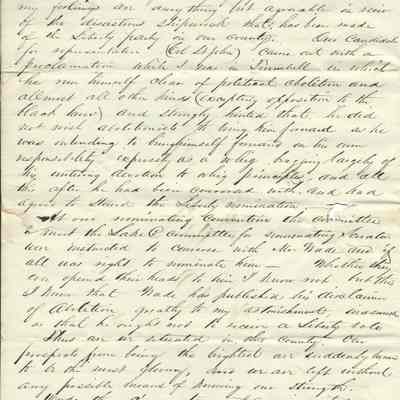 my feelings are anything but agreeable in view
of the disastrous Shipwreck that has been made
of the Liberty party in our county. Our Candidate
for representative (Col Ly) came out with a
proclamation while I was in in which
he ran himself clean of political abolition and
allmost all other kinds (excepting opposition to the
black laws) and strongly hinted that he did
not wish abolitionists to bring him forward as he
was intending to bring himself forward on his own
responsibility expressly as a whig bragging largely of
his untiring devotion to whig principles, and all
this after he had been conversed with and had
agreed to stand the Liberty nomination
At our nominating Convention the committee
to meet the Lake Co committee for nominating Senator
were instructed to converse with Mr Wade and if
all was right to nominate him — Whether they
ever opened their heads to him I know not but this
I know that Wade has published his disclaimer
of Abolition greatly to my astonishment,
so that he ought not to receive a Liberty vote
Thus are we situated in this County. Our
prospects from being the brightest are suddenly
to the most gloomy, and we are left without
any possible means of knowing our strength.